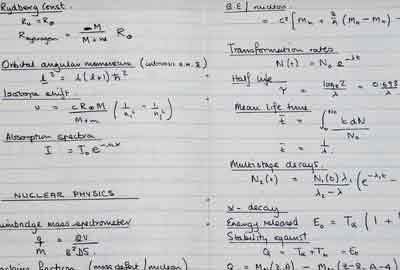 Rydberg Const.
R∞ = R∞
R hydrogen = M / M+m R∞
Orbital angular momentum
l² = l(l+1)ħ²
Isotope shift.
ν = cR∞M / M+m (1/n₁² - 1/n₂²)
Absorption spectra
I = I₀e
NUCLEAR PHYSICS
mass spectrometer
q/m =
fraction (mass defect / nucleon)
B.E / nucleon
= c² [Mn + (MH - Mn) -
Transformation rates
N(t) = N₀ e^-λt
Half life
τ = loge2 / λ = 0.693
Mean life time
t̄ = ∫ t dN / N₀
t̄ = 1/λ
Multistage decays.
N₂(t) = N₁(0) λ₁ / λ₂ - λ₁ (e^-λ₁t -
α - decay
Energy released E₀ = Tα (1 +
Stability against
Q = Tα + Th = E₀
Q = (Z, A) - (Z-2, A-4)